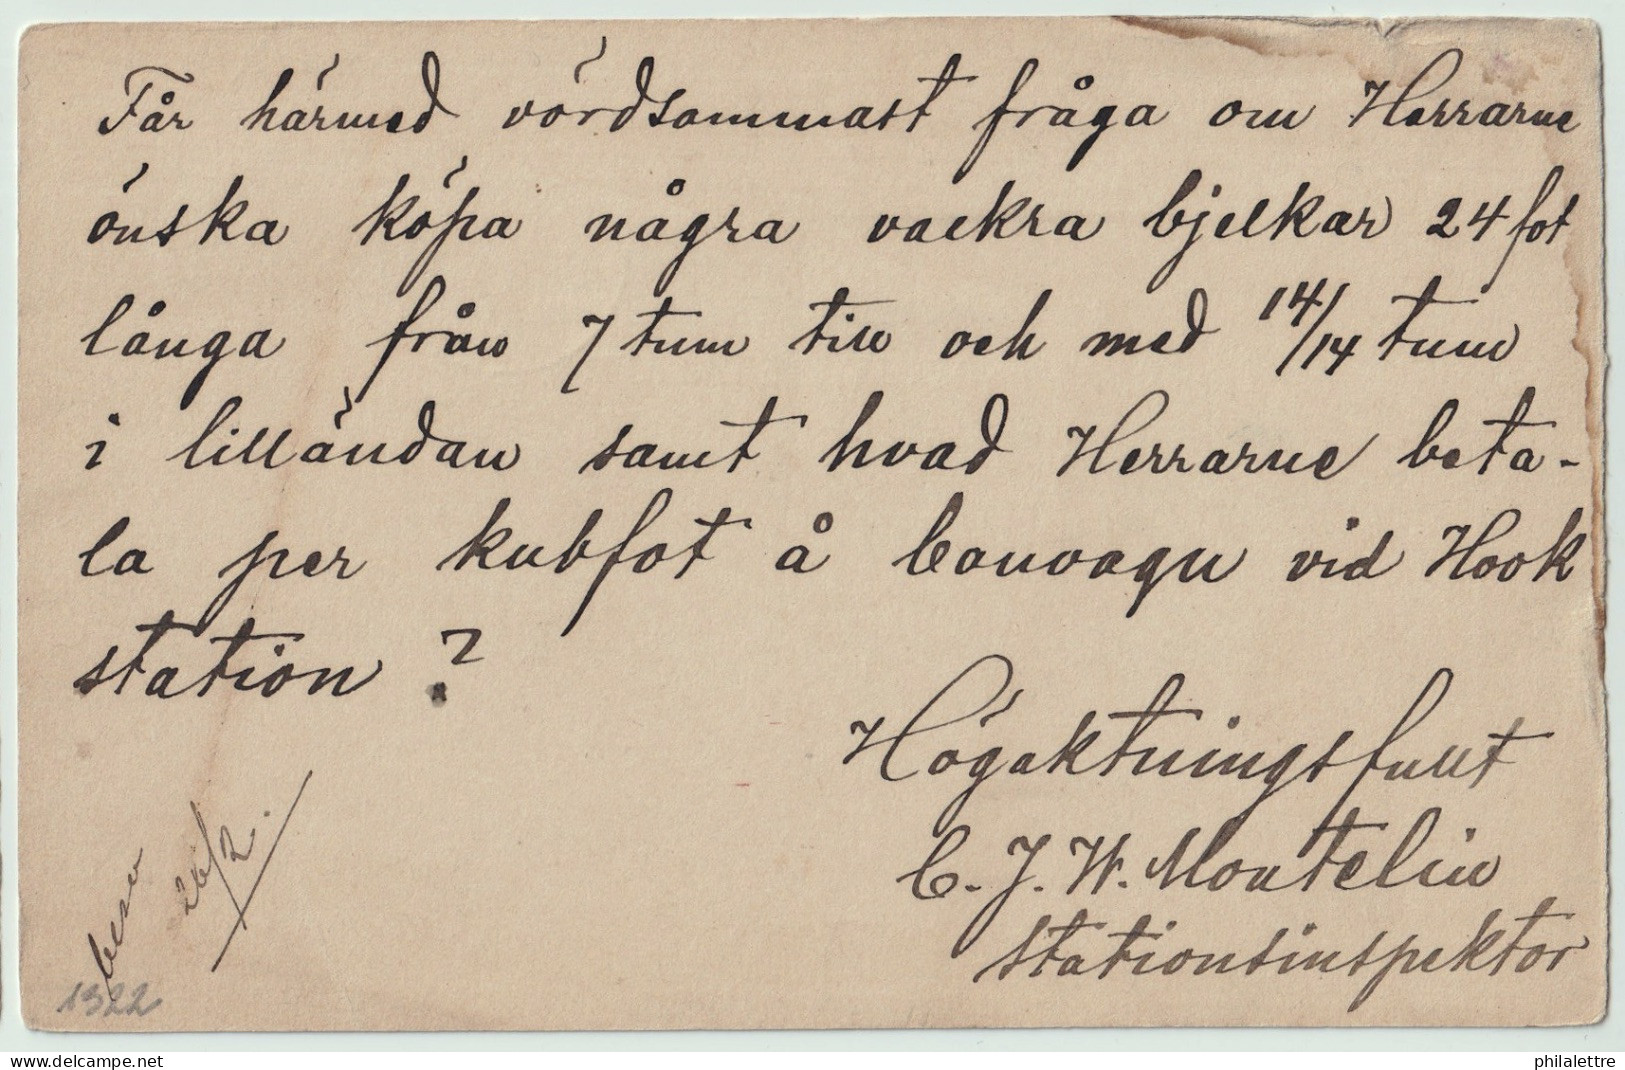 Får härmed vördsammast fråga om Herrarne
önska köpa några vackra bjelkar 24 fot
långa från 7 tum till och med 14/14 tum
i lilländan samt hvad Herrarne beta-
la per kubfot å banvagn vid Hook
station?
Högaktningsfullt
C. J. W. Montelin
Stationsinspektor
besv
26/2.
1322
www.delcampe.net
philalettre